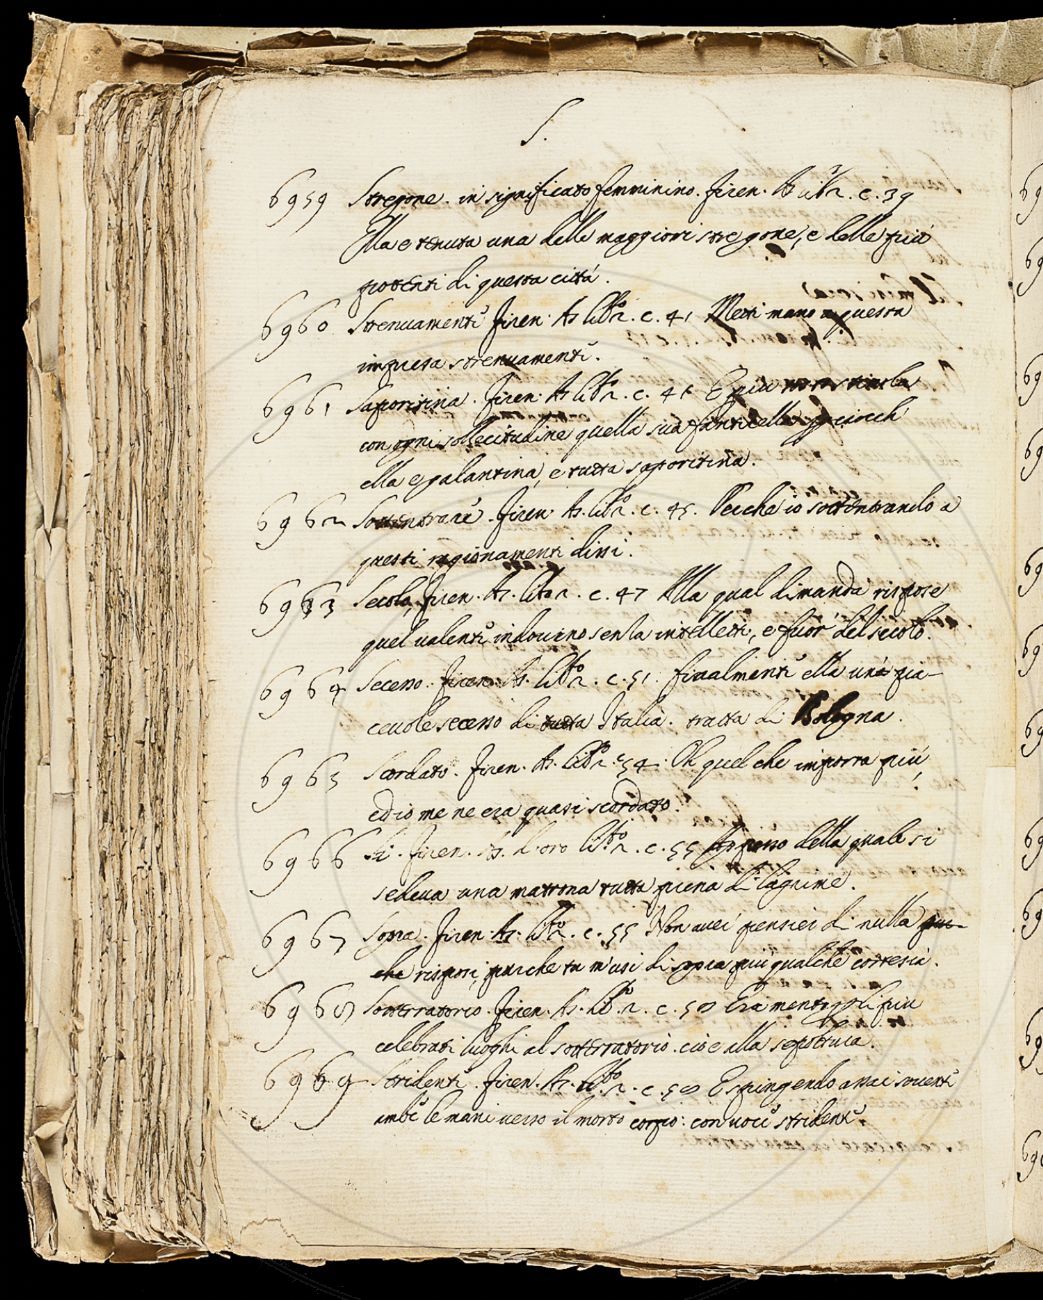 S.
6959 Stregone. in significato femminino. firen. As. libr.o 2. c. 39
Ella e tenuta una delle maggiori stregone, e delle più
potenti di questa città.
6960 Strenuamente firen. As. libr.o 2. c. 41 Metti mano a questa
impresa strenuamente.
6961 Saporitina. firen. As. libr.o 2. c. 41 E più
con ogni sollecitudine quella sua fanticella perciocch
ella e galantina, e tutta saporitina.
6962 Sottentrare. firen. As. libr.o 2. c. 45. Perche io sottentrando a
questi ragionamenti dissi.
6963 Secolo firen. As. libr.o 2. c. 47 Alla qual dimanda rispose
quel valente indovino senza intelletto, e fuor del secolo.
6964 Secesso. firen. As. lib.o 2. c. 51. finalmente ella una pia-
cevole secesso di tutta Italia. tratta di Bologna.
6965 Scordato. firen. As. lib.o 2. c. 54. Oh quel che importa più,
ed io me ne era quasi scordato.
6966 Si. firen. As. d'oro lib.o 2. c. 55 della quale si
sedeva una matrona tutta piena di lagrime.
6967 Sopra. firen. As. lib.o 2. c. 55 Non aver pensier di nulla
che risposi, purche tu m'usi di sopra più qualche cortesia.
6968 Sotterratorio. firen. As. lib.o 2. c. 58 Era mentre per li più
celebrati luoghi al sotterratorio. cioe alla sepoltura.
6969 Stridente. firen. As. lib.o 2. c. 58 Espingendo amci sovente
ambe le mani verso il morto corpo: con voce stridente.